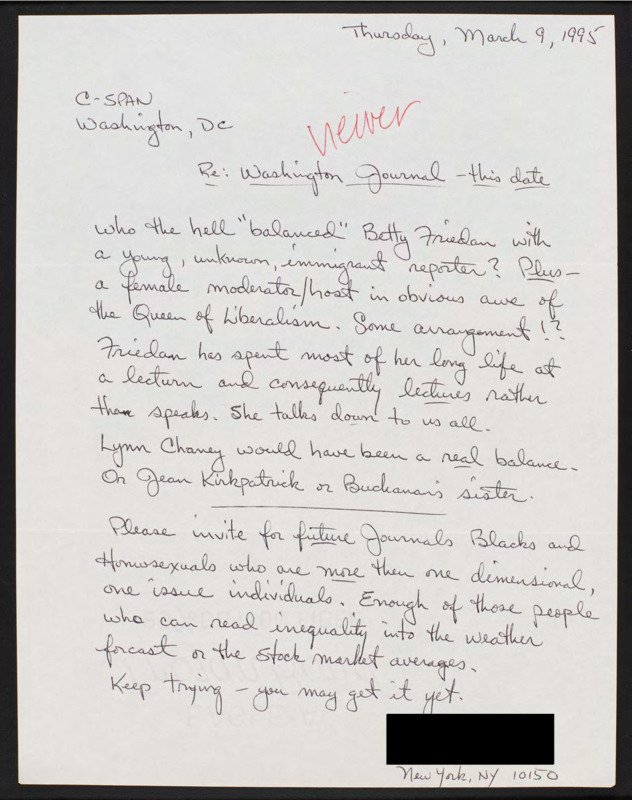 Thursday, March 9, 1995
C-SPAN
Washington, DC
viewer
Re: Washington Journal - this date
Who the hell "balanced" Betty Friedan with
a young, unknown, immigrant reporter? Plus -
a female moderator/host in obvious awe of
the Queen of Liberalism. Some arrangement!?
Friedan has spent most of her long life at
a lecturn and consequently lectures rather
than speaks. She talks down to us all.
Lynn Chaney would have been a real balance.
Or Jean Kirkpatrick or Buchanan's sister.
Please invite for future Journals Blacks and
Homosexuals who are more then one dimensional,
one issue individuals. Enough of those people
who can read inequality into the weather
forcast or the stock market averages.
Keep trying - you may get it yet.
New York, NY 10150